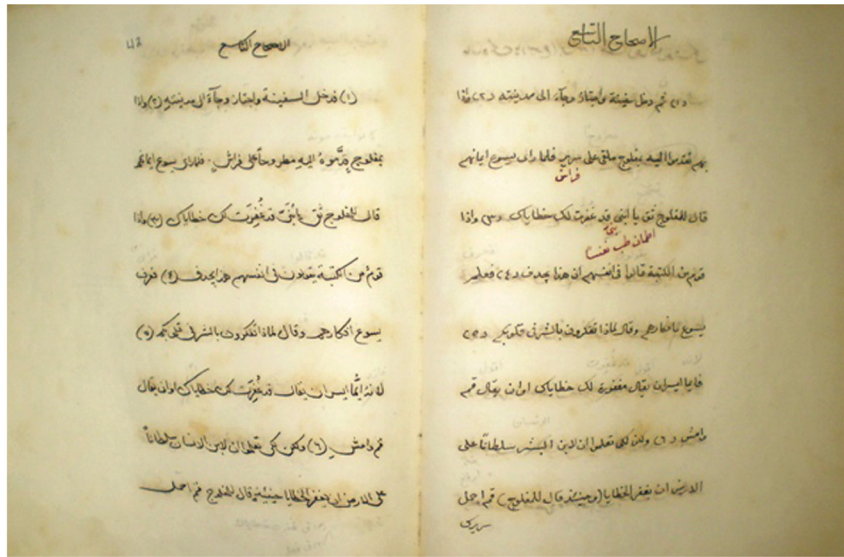 الاصحاح التاسع
(١) ثم دخل سفينة واجتاز وجآء الى مدينته (٢) واذا
بهم تقدموا اليه بمفلوج ملقى على سرير فلما رأى يسوع ايمانهم
فراش
قال للمفلوج ثق يا ابني قد غفرت لك خطاياك (٣) واذا
اطمان طب نفسا
قوم من الكتبة قالوا في انفسهم ان هذا يجدف (٤) فعلم
يسوع بافكارهم وقال لماذا تفكرون بالشر في قلوبكم (٥)
فايما ايسر ان يقال مغفورة لك خطاياك او ان يقال قم
وامش (٦) ولكن لكي تعلموا ان لابن البشر سلطانا على
الارض ان يغفر الخطايا (وحينئذ قال للمفلوج) قم احمل
سريرك
الاصحاح التاسع
(١) فدخل السفينة واجتاز وجآء الى مدينته (٢) واذا
بمفلوج قدّموهُ اليه مطروحاً على فراش. فلما رأى يسوع ايمانهم
قال للمفلوج ثق يا بُنَيّ قد غُفِرَت لك خطاياك (٣) واذا
قومٌ من الكتبة يقولون في انفسهم هذا يجدف (٤) فعرف
يسوع افكارهم وقال لماذا تفكرون بالشر في قلوبكم (٥)
لانهُ ايُّما ايسر ان يقال قد غُفِرَت لك خطاياك او ان يقال
قم وامشِ (٦) ولكن لكي تعلموا ان لابن الانسان سلطاناً
على الارض ان يغفر الخطايا حينئذٍ قال للمفلوج قم احمل